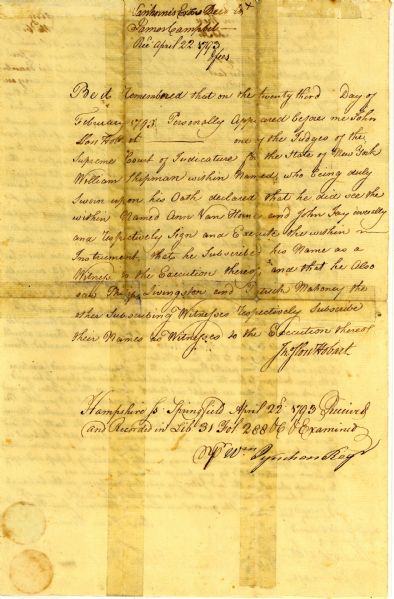 VanHorne's Exrs Deed to
James Campbell
Rec April 22 1793
Be it Remembered that on the twenty third Day of
February 1793. Personally Appeared before me John
Sloss Hobart one of the Judges of the
Supreme Court of Judicature for the State of New York
William Shipman within Named, who being duly
Sworn upon his Oath declared that he did see the
within Named Ann Van Horne and John Jay severally
and respectively Sign and Execute the within
Instrument, that he Subscribed his Name as a
Witness to the Execution thereof and that he Also
saw Livingston and Mahoney the
other Subscribing Witnesses respectively Subscribe
their Names as Witnesses to the Execution thereof
Jno Sloss Hobart
Hampshire Ss. Springfield April 22d 1793 Received
and Recorded in Lib 31 Fol 288 & Examined
pr Wm Pynchon Regr